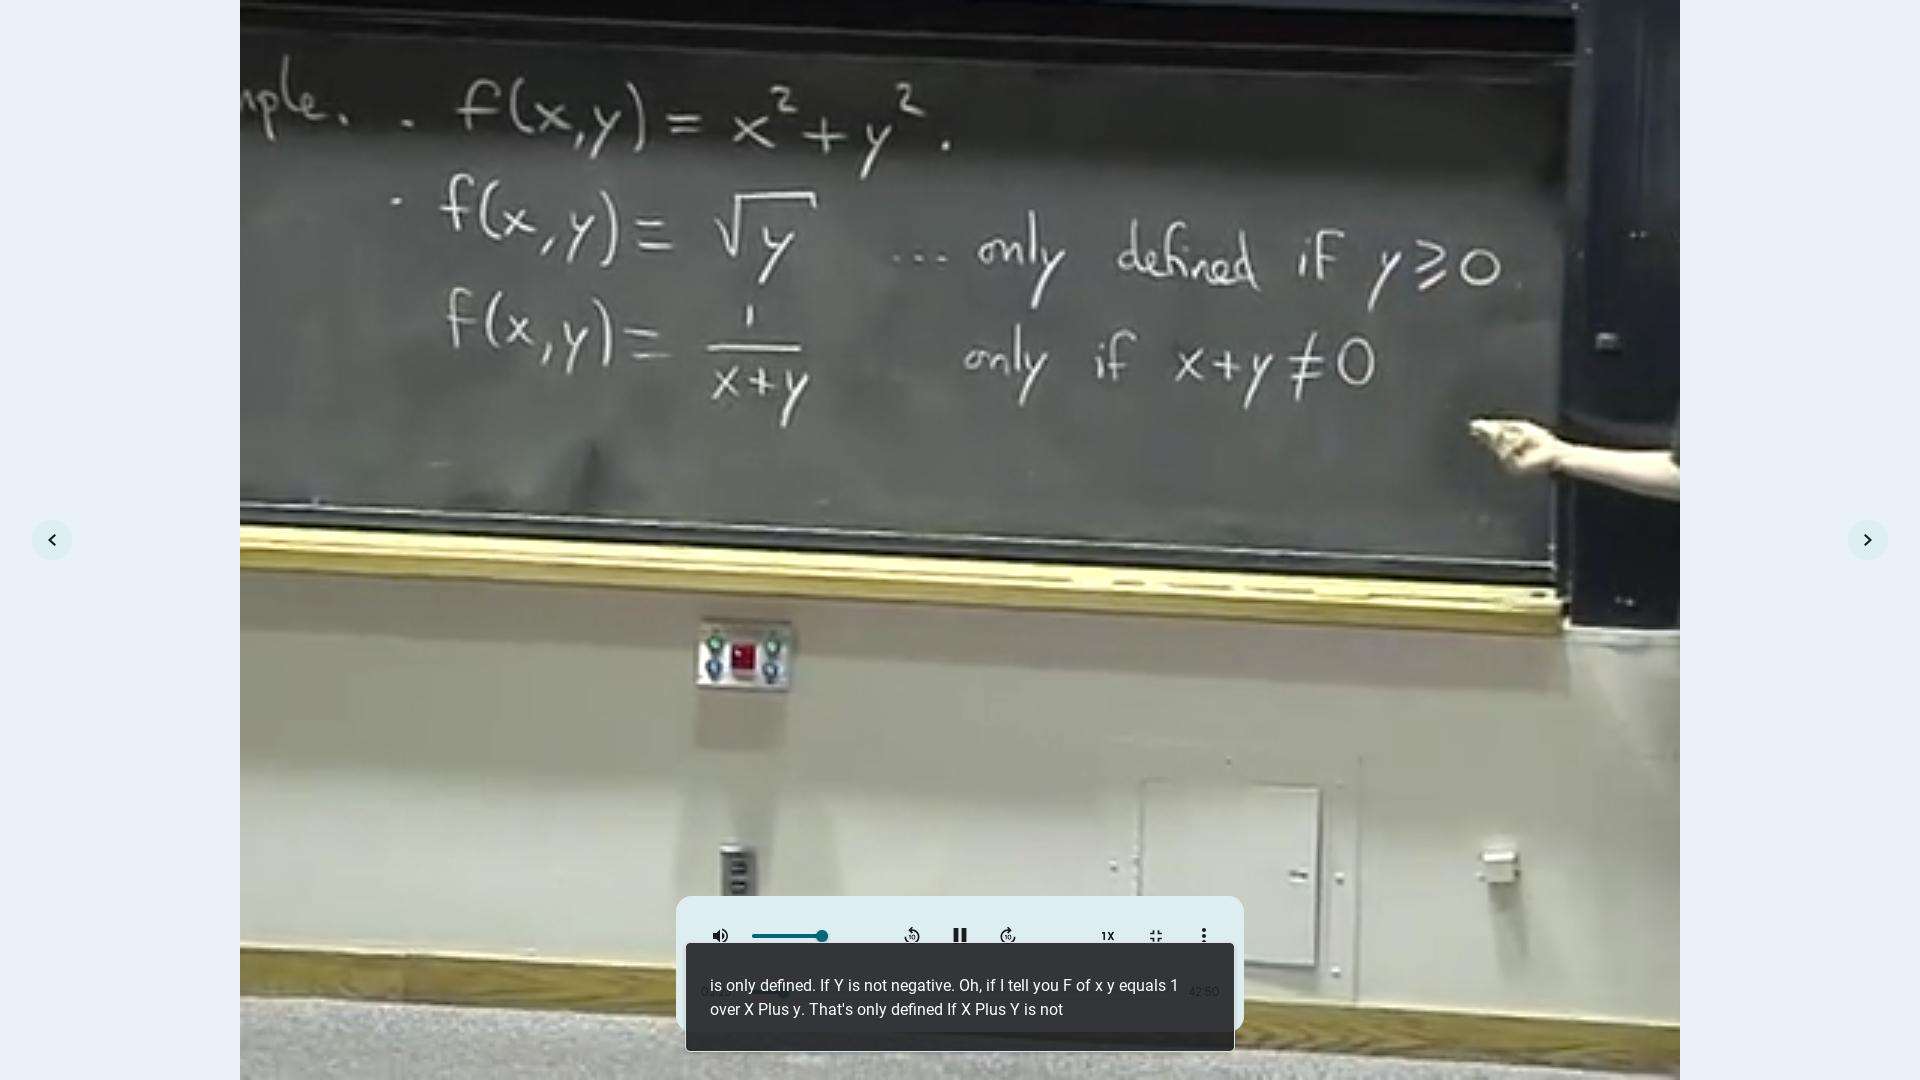 mple. . f(x,y) = x² + y².
· f(x,y) = √y ... only defined if y ≥ 0.
f(x,y) = 1/(x+y) only if x+y ≠ 0
10
10
1X
is only defined. If Y is not negative. Oh, if I tell you F of x y equals 1
over X Plus y. That's only defined If X Plus Y is not
42:50